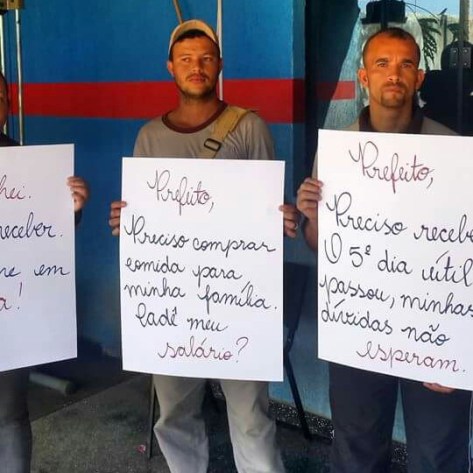 hei.
receber.
e em
a!
Prefeito,
Preciso comprar
comida para
minha família.
Cadê meu
salário?
Prefeito,
Preciso recebe
O 5º dia útil
passou, minhas
dívidas não
esperam.